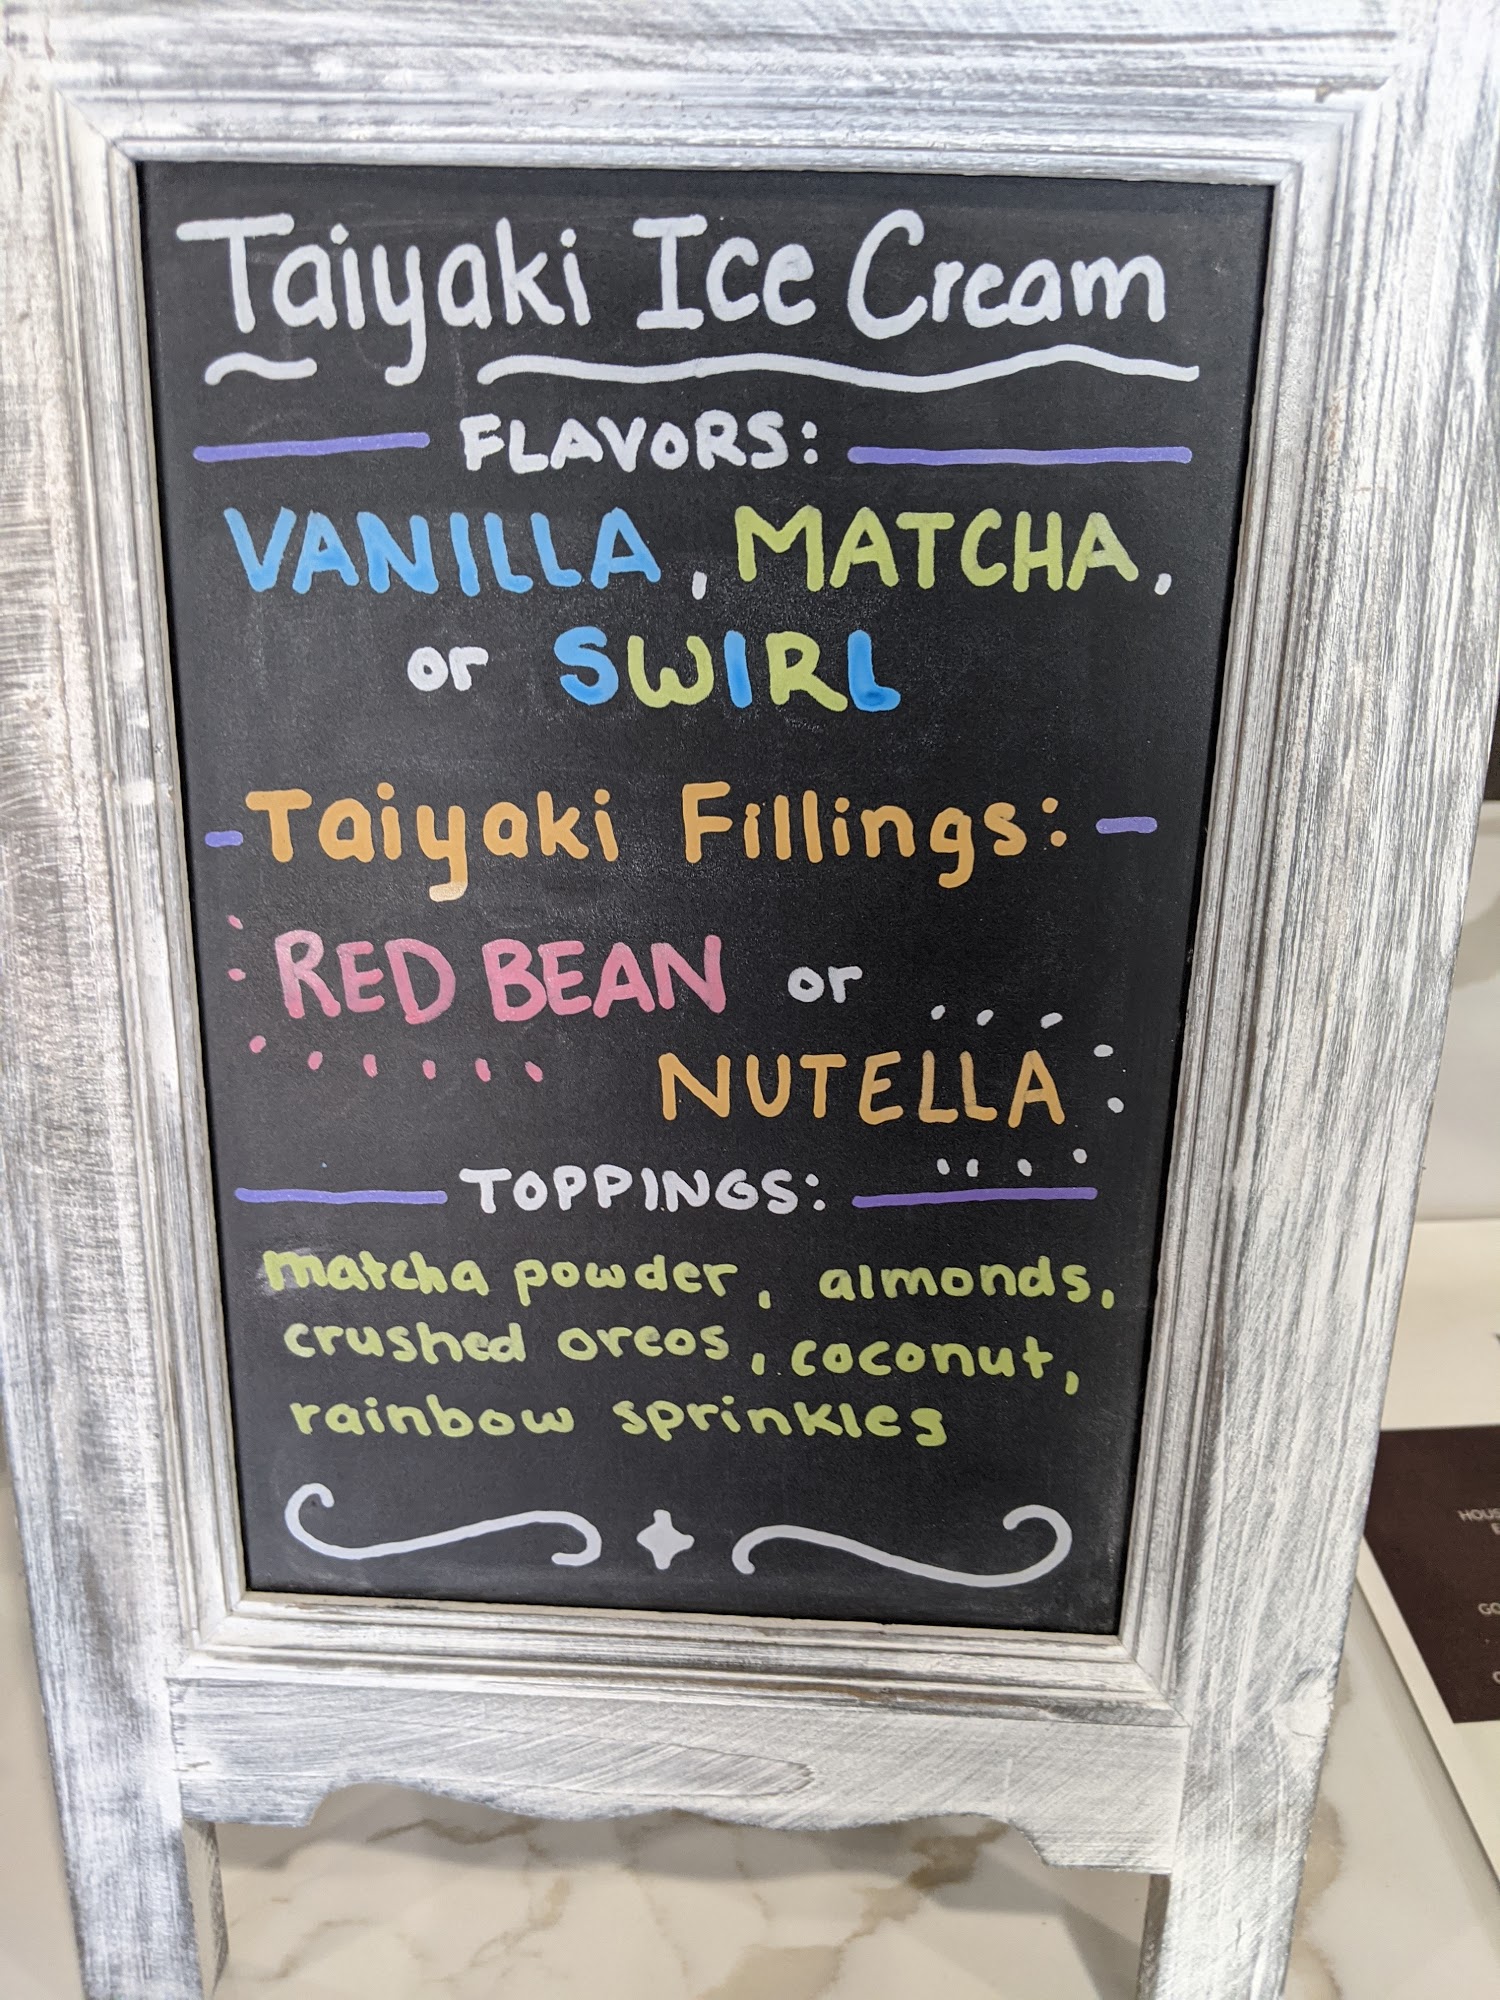 Taiyaki Ice Cream
FLAVORS:
VANILLA, MATCHA,
or SWIRL
Taiyaki Fillings:
RED BEAN or
NUTELLA
TOPPINGS:
matcha powder, almonds,
crushed oreos, coconut,
rainbow sprinkles